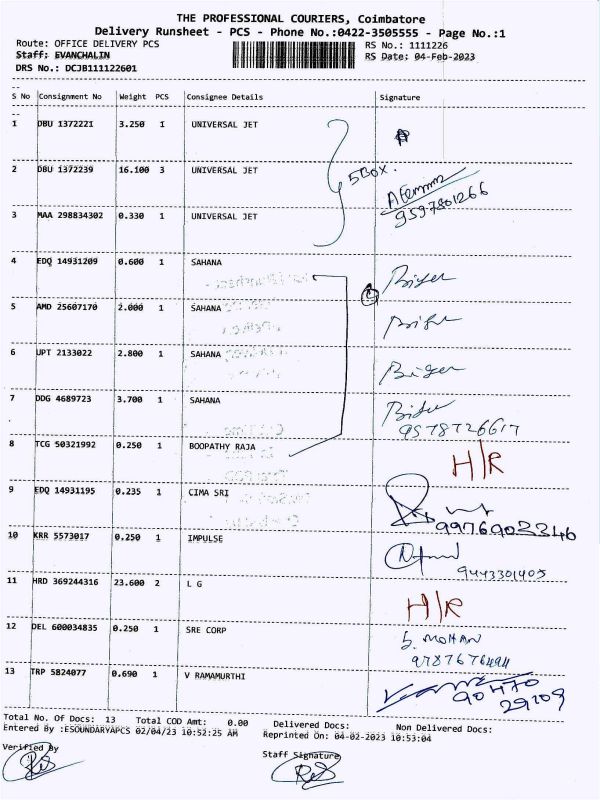 THE PROFESSIONAL COURIERS, Coimbatore
Delivery Runsheet - PCS - Phone No.:0422-3505555 - Page No.:1
Route: OFFICE DELIVERY PCS RS No.: 1111226
Staff: EVANCHALIN RS Date: 04-Feb-2023
DRS No.: DCJB111122601
S No Consignment No Weight PCS Consignee Details Signature
1 DBU 1372221 3.250 1 UNIVERSAL JET
2 DBU 1372239 16.100 3 UNIVERSAL JET 5 BOX.
9597801266
3 MAA 298834302 0.330 1 UNIVERSAL JET
4 EDQ 14931209 0.600 1 SAHANA
5 AMD 25607170 2.000 1 SAHANA
6 UPT 2133022 2.800 1 SAHANA
7 DDG 4689723 3.700 1 SAHANA
9578726617
8 TCG 50321992 0.250 1 BOOPATHY RAJA H/R
9 EDQ 14931195 0.235 1 CIMA SRI
9976903346
10 KRR 5573017 0.250 1 IMPULSE
9443301405
11 HRD 369244316 23.600 2 L G H/R
12 DEL 600034835 0.250 1 SRE CORP S. MOHAN
9787676494
13 TRP 5824077 0.690 1 V RAMAMURTHI
29209
Total No. Of Docs: 13 Total COD Amt: 0.00 Delivered Docs: Non Delivered Docs:
Entered By :ESOUNDARYAPCS 02/04/23 10:52:25 AM Reprinted On: 04-02-2023 10:53:04
Verified By Staff Signature